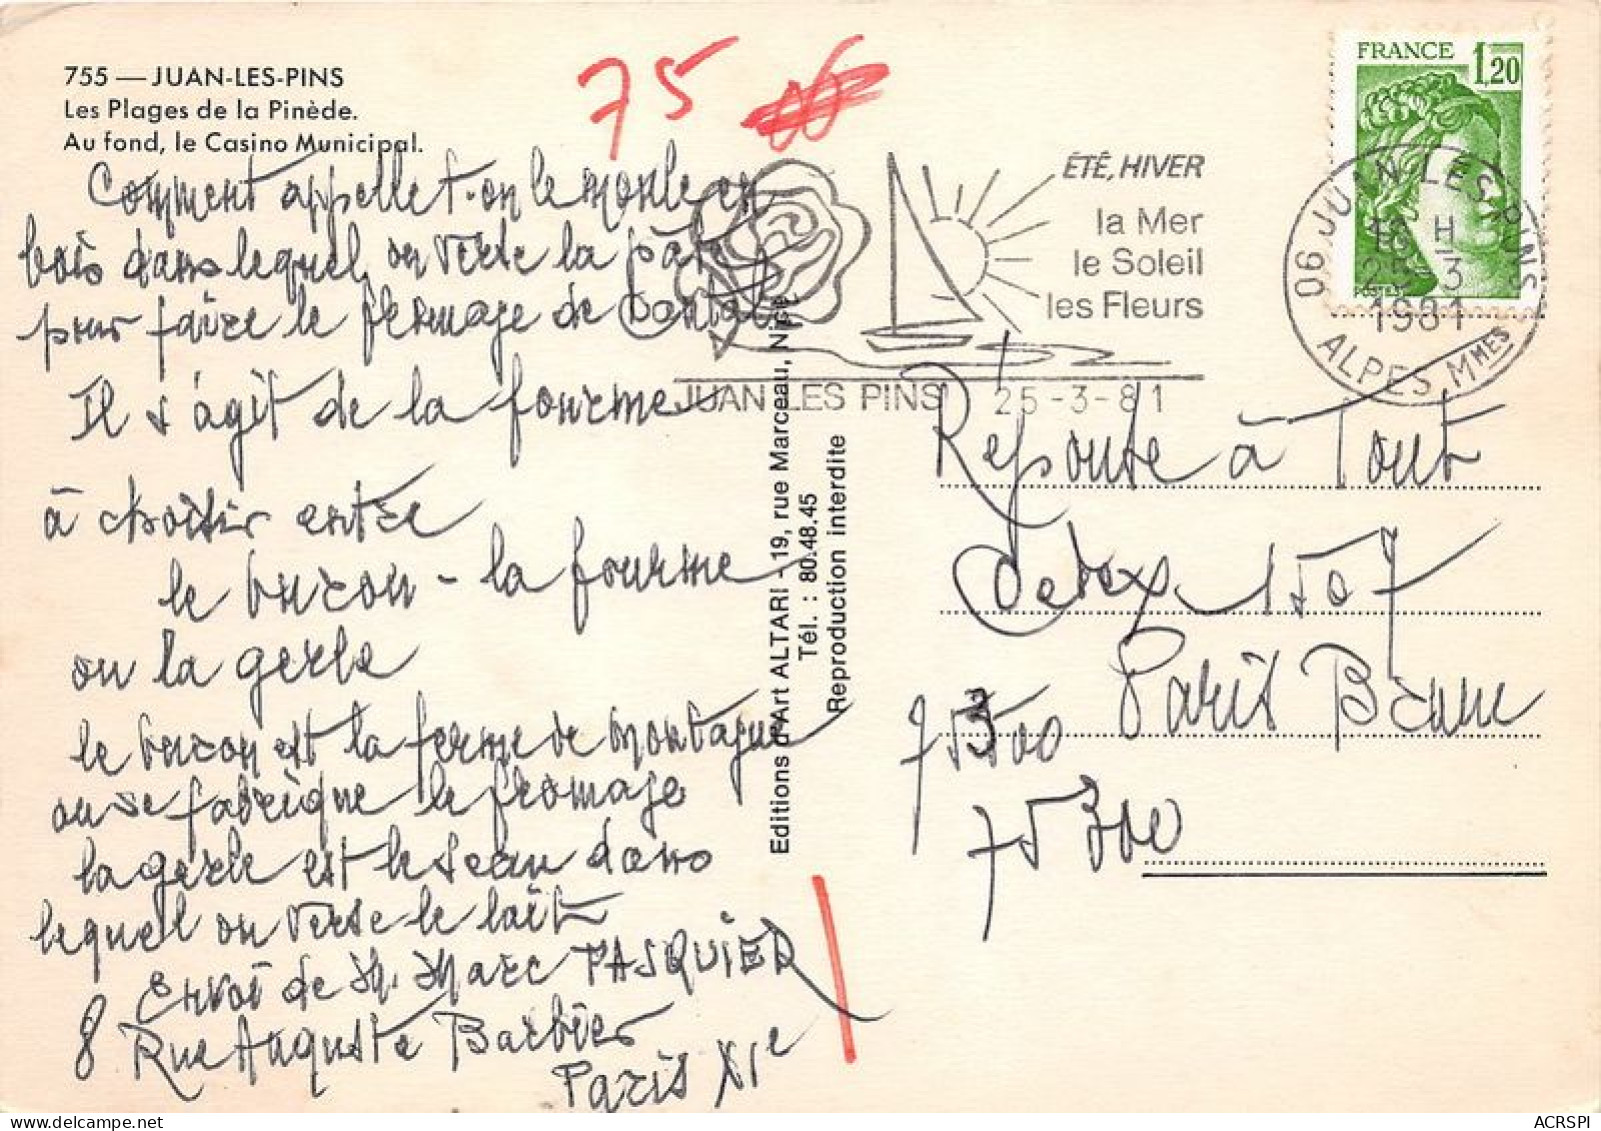 755 — JUAN-LES-PINS
Les Plages de la Pinède.
Au fond, le Casino Municipal.
75
FRANCE 1,20
ÉTÉ, HIVER
la Mer
le Soleil
les Fleurs
JUAN LES PINS 25-3-81
06 JUAN LES PINS
16 H
25-3
1981
ALPES Mmes
Comment appelle t-on le moule en
bois dans lequel on verse la pâte
pour faire le fromage de Cantal
Il s'agit de la fourme
à choisir entre
le buron - la fourme
ou la gerle
le buron est la ferme de montagne
ou se fabrique le fromage
la gerle est le seau dans
lequel on verse le lait
Envoi de M. Marc PASQUIER
8 Rue Auguste Barbier
Paris XIe
Editions d'Art ALTARI - 19, rue Marceau, Nice
Tél. : 80.48.45
Reproduction interdite
Réponse à Tout
Cedex 1507
Paris Brune
75300
75300
ACRSPI